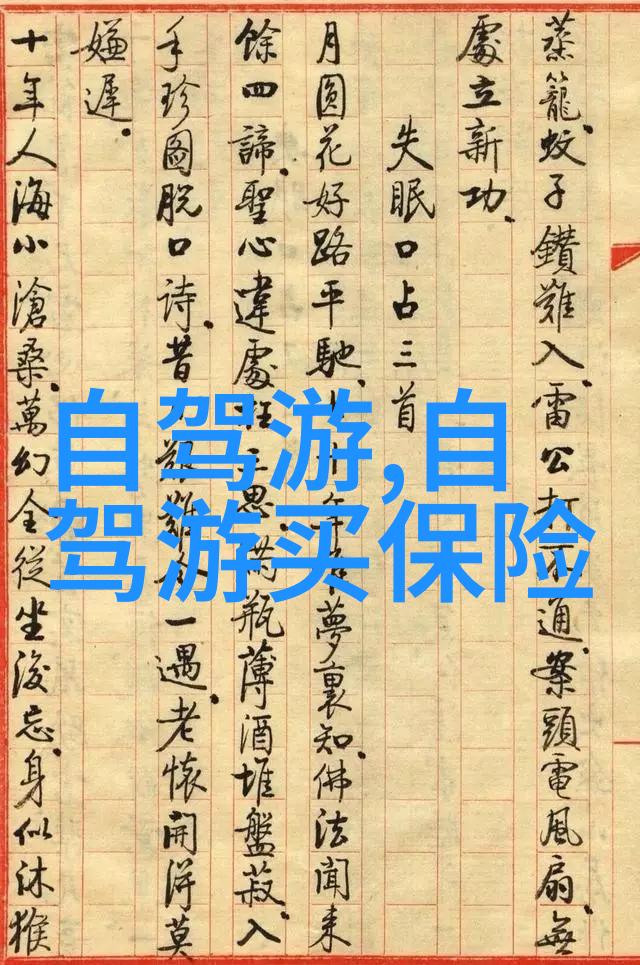 蒸籠蚊子鑽難入雷公打不通案頭電風扇無
處立新功
失眠口占三首
月圓花好路平馳年夢裏知佛法聞來
餘四諦聖心違處三思瓶薄酒堆盤菽入
手珍圖脫口詩昔艱難今一遇老懷開得莫
嫌遲
十年人海小滄桑萬幻全從坐後忘身似沐猴
自驾游,自
驾游买保险